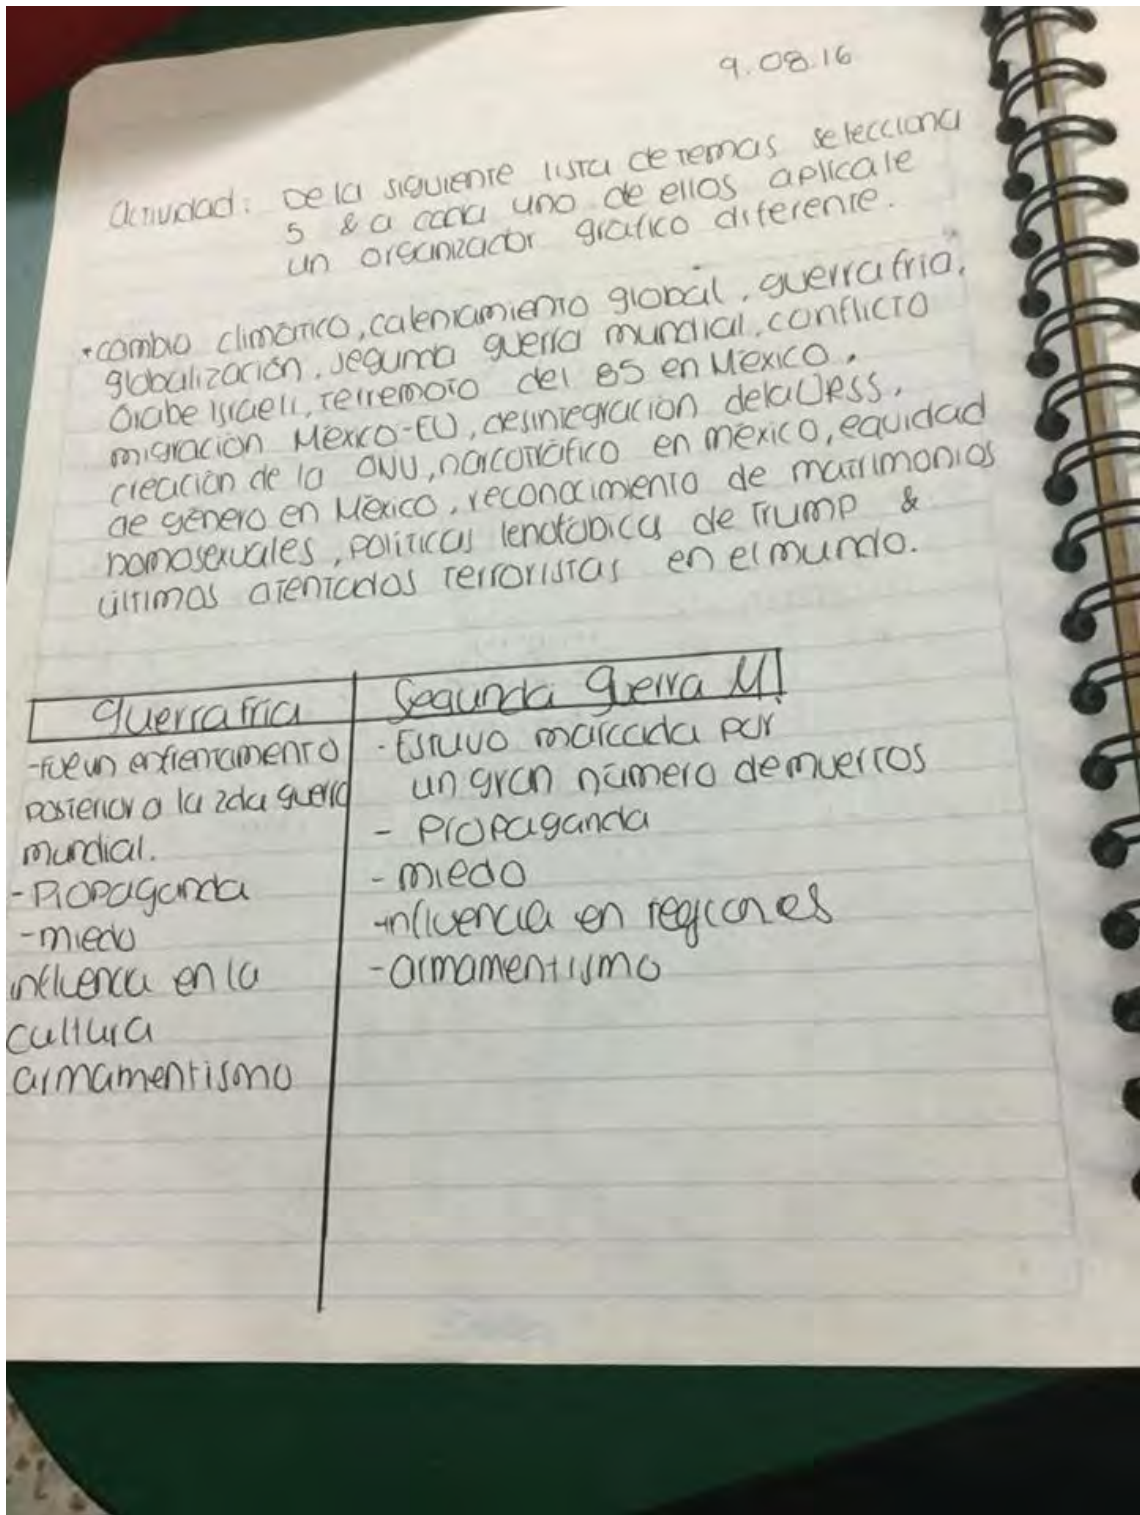 9.08.16
Actividad: De la siguiente lista de temas selecciona
5 & a cada uno de ellos aplicale
un organizador gráfico diferente.
•cambio climático, calentamiento global, guerra fria,
globalización, segunda guerra mundial, conflicto
árabe Israeli, terremoto del 85 en México,
migración México-EU, desintegración dela URSS,
creación de la ONU, narcotráfico en méxico, equidad
de género en México, reconocimiento de matrimonios
homosexuales, políticas de Trump &
últimos atentados terroristas en el mundo.
guerra fria
Segunda guerra M!
-fue un enfrentamiento
posterior a la 2da guerra
mundial.
-Propaganda
-miedo
influencia en la
cultura
armamentismo
-Estuvo marcada por
un gran número de muertos
- Propaganda
-miedo
-influencia en regiones
-armamentismo